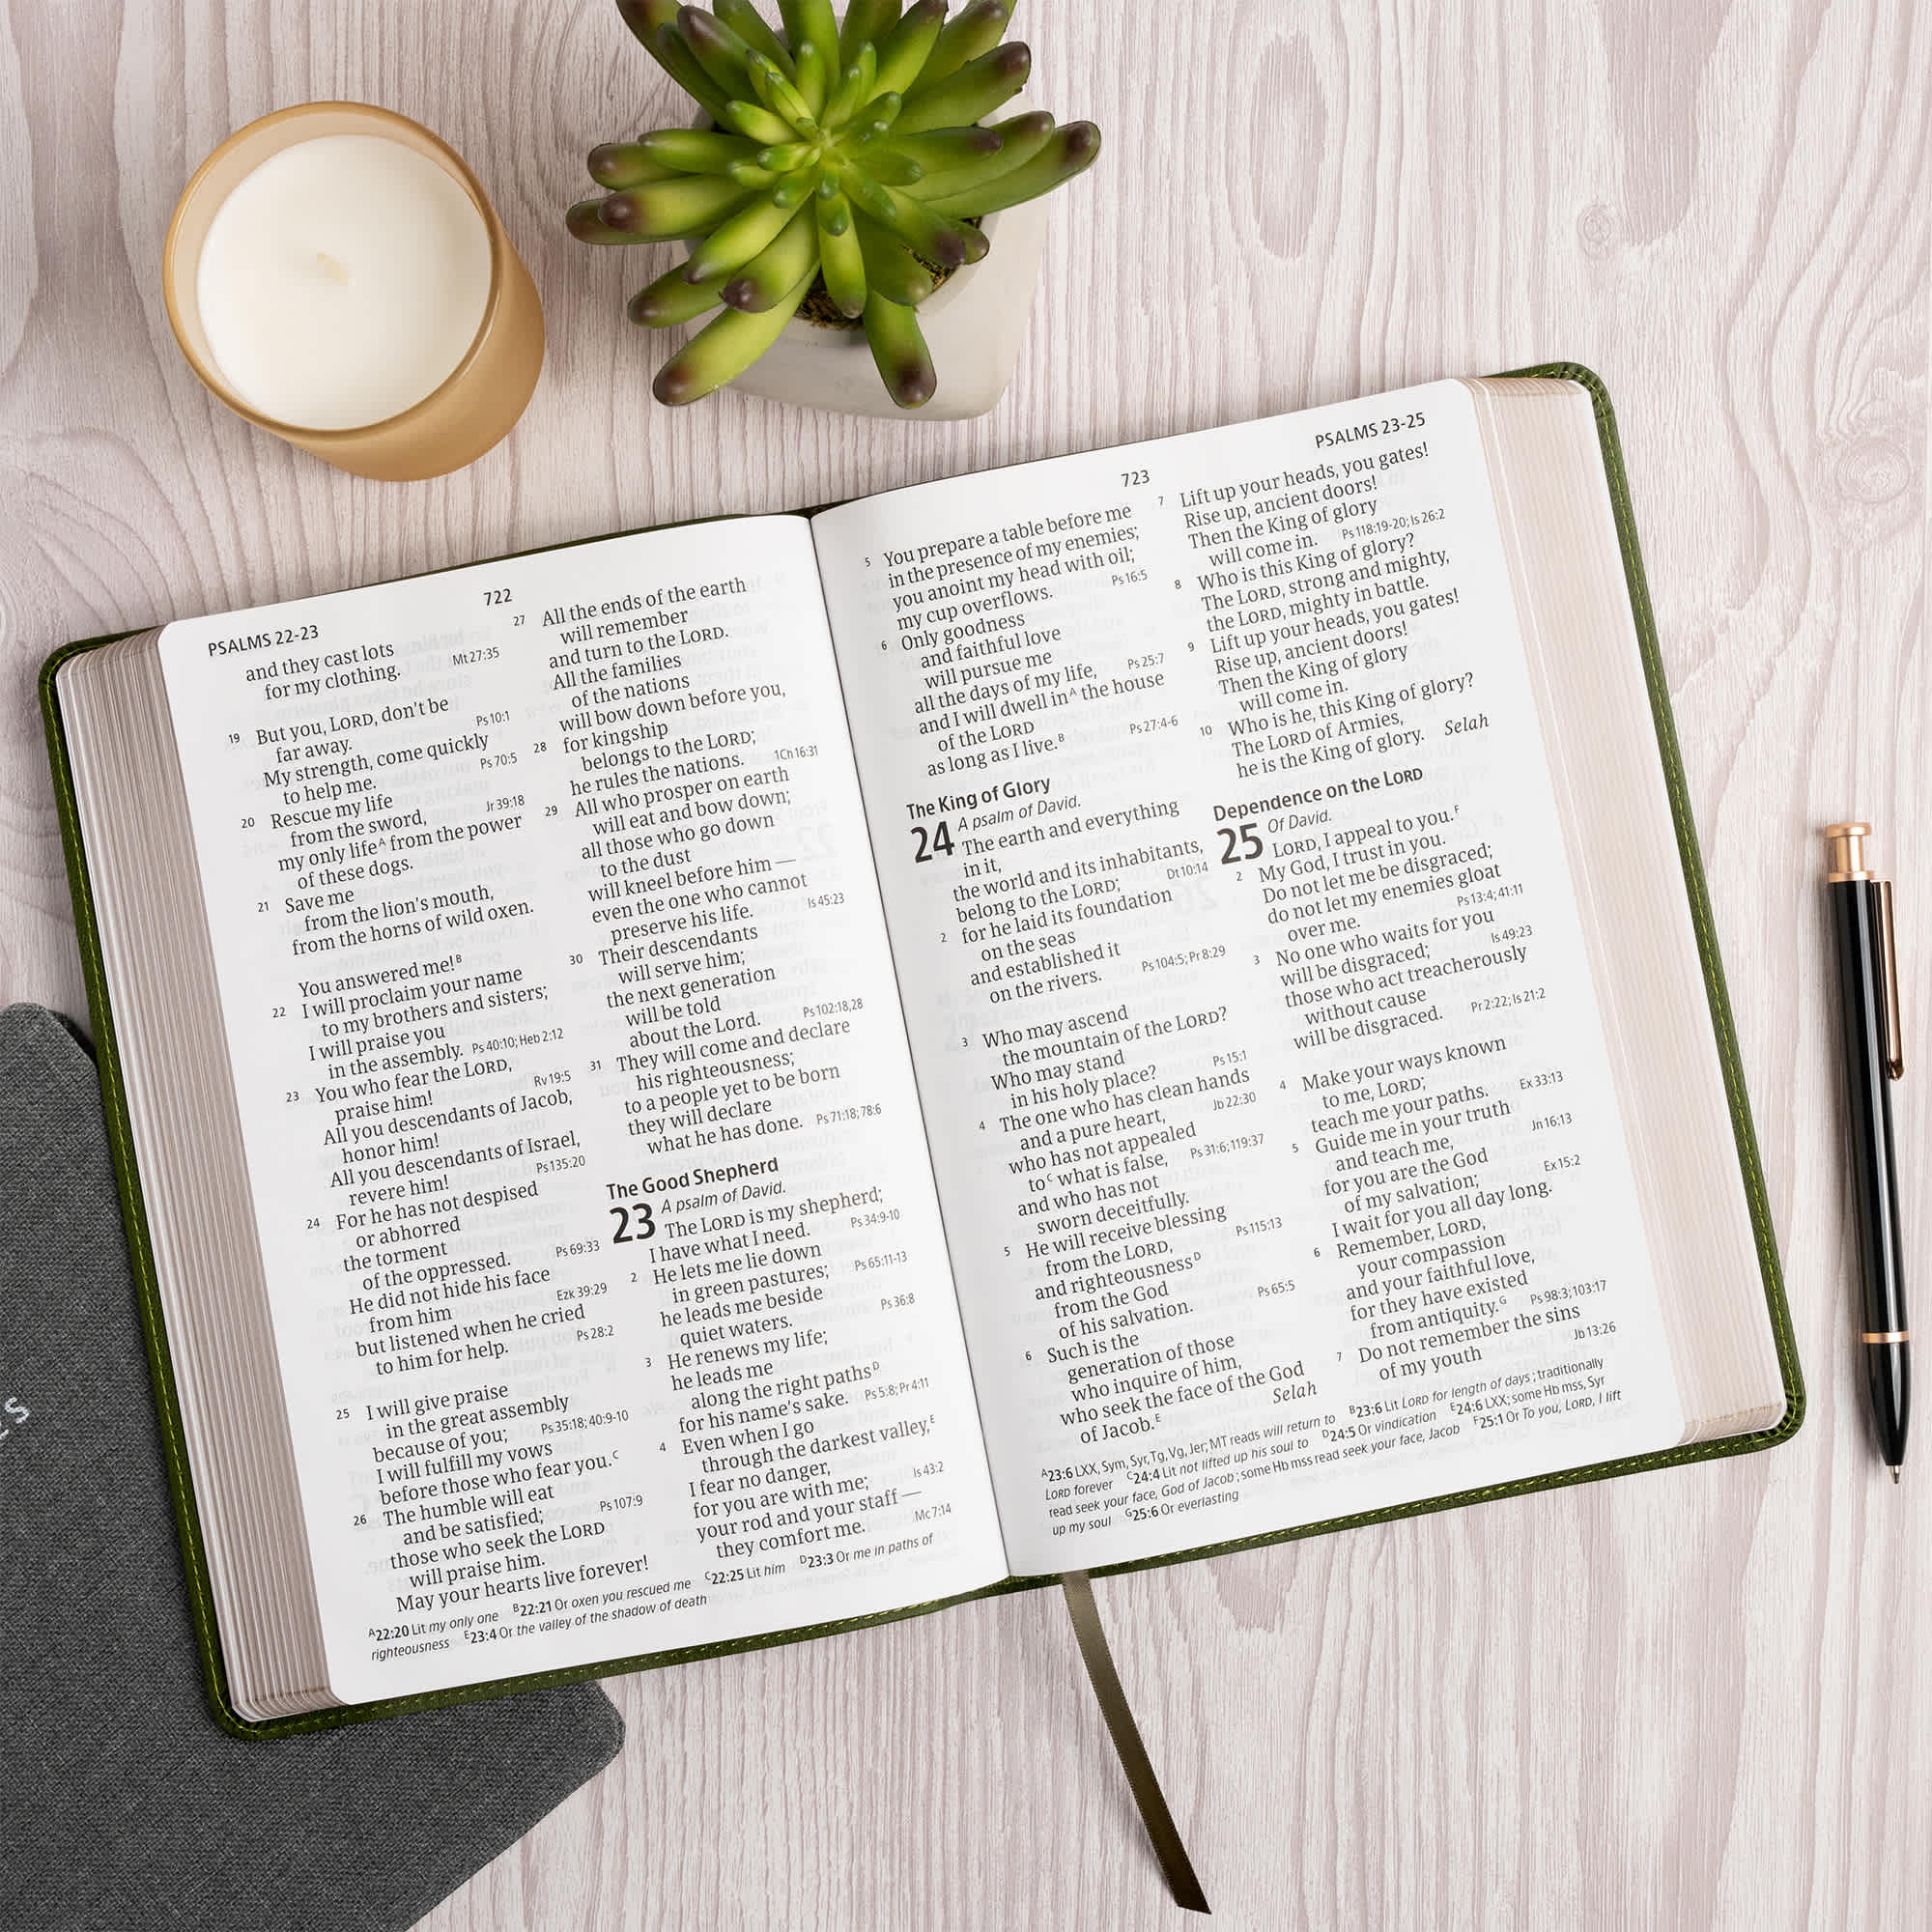 PSALMS 22-23
722
and they cast lots
for my clothing. Mt 27:35
19 But you, LORD, don't be
far away. Ps 10:1
My strength, come quickly
to help me. Ps 70:5
20 Rescue my life
from the sword, Jr 39:18
my only lifeᴬ from the power
of these dogs.
21 Save me
from the lion's mouth,
from the horns of wild oxen.
You answered me!ᴮ
22 I will proclaim your name
to my brothers and sisters;
I will praise you
in the assembly. Ps 40:10; Heb 2:12
23 You who fear the LORD,
praise him! Rv 19:5
All you descendants of Jacob,
honor him!
All you descendants of Israel,
revere him! Ps 135:20
24 For he has not despised
or abhorred
the torment
of the oppressed. Ps 69:33
He did not hide his face
from him Ezk 39:29
but listened when he cried
to him for help. Ps 28:2
25 I will give praise
in the great assembly
because of you; Ps 35:18; 40:9-10
I will fulfill my vows
before those who fear you.ꟲ
26 The humble will eat
and be satisfied; Ps 107:9
those who seek the LORD
will praise him.
May your hearts live forever!
27 All the ends of the earth
will remember
and turn to the LORD.
All the families
of the nations
will bow down before you,
28 for kingship
belongs to the LORD;
he rules the nations. 1Ch 16:31
29 All who prosper on earth
will eat and bow down;
all those who go down
to the dust
will kneel before him —
even the one who cannot
preserve his life. Is 45:23
30 Their descendants
will serve him;
the next generation
will be told
about the Lord. Ps 102:18,28
31 They will come and declare
his righteousness;
to a people yet to be born
they will declare
what he has done. Ps 71:18; 78:6
The Good Shepherd
23 A psalm of David.
The LORD is my shepherd;
I have what I need. Ps 34:9-10
2 He lets me lie down
in green pastures; Ps 65:11-13
he leads me beside
quiet waters. Ps 36:8
3 He renews my life;
he leads me
along the right pathsᴰ
for his name's sake. Ps 5:8; Pr 4:11
4 Even when I go
through the darkest valley,ᴱ
I fear no danger,
for you are with me; Is 43:2
your rod and your staff —
they comfort me. Mc 7:14
ᴬ22:20 Lit my only one ᴮ22:21 Or oxen you rescued me ꟲ22:25 Lit him ᴰ23:3 Or me in paths of
righteousness ᴱ23:4 Or the valley of the shadow of death
723
PSALMS 23-25
5 You prepare a table before me
in the presence of my enemies;
you anoint my head with oil;
my cup overflows. Ps 16:5
6 Only goodness
and faithful love
will pursue me
all the days of my life, Ps 25:7
and I will dwell inᴬ the house
of the LORD
as long as I live.ᴮ Ps 27:4-6
The King of Glory
24 A psalm of David.
The earth and everything
in it,
the world and its inhabitants,
belong to the LORD; Dt 10:14
2 for he laid its foundation
on the seas
and established it
on the rivers. Ps 104:5; Pr 8:29
3 Who may ascend
the mountain of the LORD?
Who may stand
in his holy place? Ps 15:1
4 The one who has clean hands
and a pure heart, Jb 22:30
who has not appealed
toꟲ what is false, Ps 31:6; 119:37
and who has not
sworn deceitfully.
5 He will receive blessing
from the LORD, Ps 115:13
and righteousnessᴰ
from the God
of his salvation. Ps 65:5
6 Such is the
generation of those
who inquire of him,
who seek the face of the God
of Jacob.ᴱ Selah
7 Lift up your heads, you gates!
Rise up, ancient doors!
Then the King of glory
will come in. Ps 118:19-20; Is 26:2
8 Who is this King of glory?
The LORD, strong and mighty,
the LORD, mighty in battle.
9 Lift up your heads, you gates!
Rise up, ancient doors!
Then the King of glory
will come in.
10 Who is he, this King of glory?
The LORD of Armies,
he is the King of glory. Selah
Dependence on the LORD
25 Of David.
LORD, I appeal to you.ꟳ
2 My God, I trust in you.
Do not let me be disgraced;
do not let my enemies gloat
over me. Ps 13:4; 41:11
3 No one who waits for you
will be disgraced; Is 49:23
those who act treacherously
without cause
will be disgraced. Pr 2:22; Is 21:2
4 Make your ways known
to me, LORD;
teach me your paths. Ex 33:13
5 Guide me in your truth
and teach me, Jn 16:13
for you are the God
of my salvation; Ex 15:2
I wait for you all day long.
6 Remember, LORD,
your compassion
and your faithful love,
for they have existed
from antiquity.ᴳ Ps 98:3; 103:17
7 Do not remember the sins
of my youth Jb 13:26
ᴬ23:6 LXX, Sym, Syr, Tg, Vg, Jer; MT reads will return to ᴮ23:6 Lit LORD for length of days; traditionally
LORD forever ꟲ24:4 Lit not lifted up his soul to ᴰ24:5 Or vindication ᴱ24:6 LXX; some Hb mss, Syr
read seek your face, God of Jacob; some Hb mss read seek your face, Jacob ꟳ25:1 Or To you, LORD, I lift
up my soul ᴳ25:6 Or everlasting